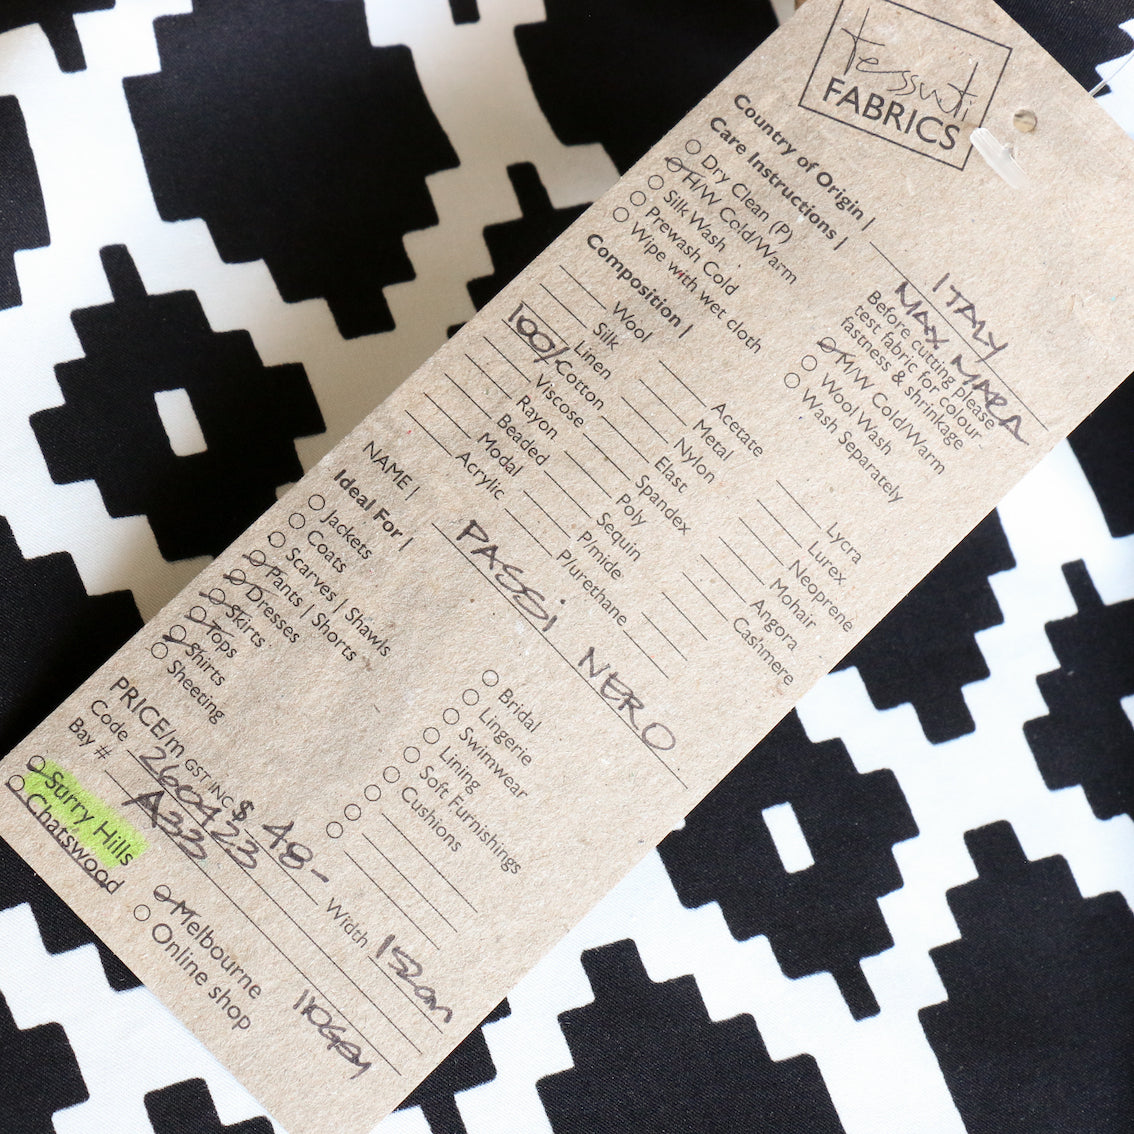 tessuti
FABRICS
Country of Origin | ITALY
Care Instructions | MAX MARA
Dry Clean (P)
H/W Cold/Warm
Silk Wash
Prewash Cold
Wipe with wet cloth
Before cutting please
test fabric for colour
fastness & shrinkage
M/W Cold/Warm
Wool Wash
Wash Separately
Composition |
Wool
Silk
Linen
100% Cotton
Viscose
Rayon
Beaded
Modal
Acrylic
Acetate
Metal
Nylon
Elast
Spandex
Poly
Sequin
P/mide
P/urethane
Lycra
Lurex
Neoprene
Mohair
Angora
Cashmere
NAME | PASSI NERO
Ideal For |
Jackets
Coats
Scarves | Shawls
Pants | Shorts
Dresses
Skirts
Tops
Shirts
Sheeting
Bridal
Lingerie
Swimwear
Lining
Soft Furnishings
Cushions
PRICE/m GST INC $ 48- Width 152cm
Code 260423
Bay # A33 110GSM
Surry Hills
Chatswood
Melbourne
Online shop